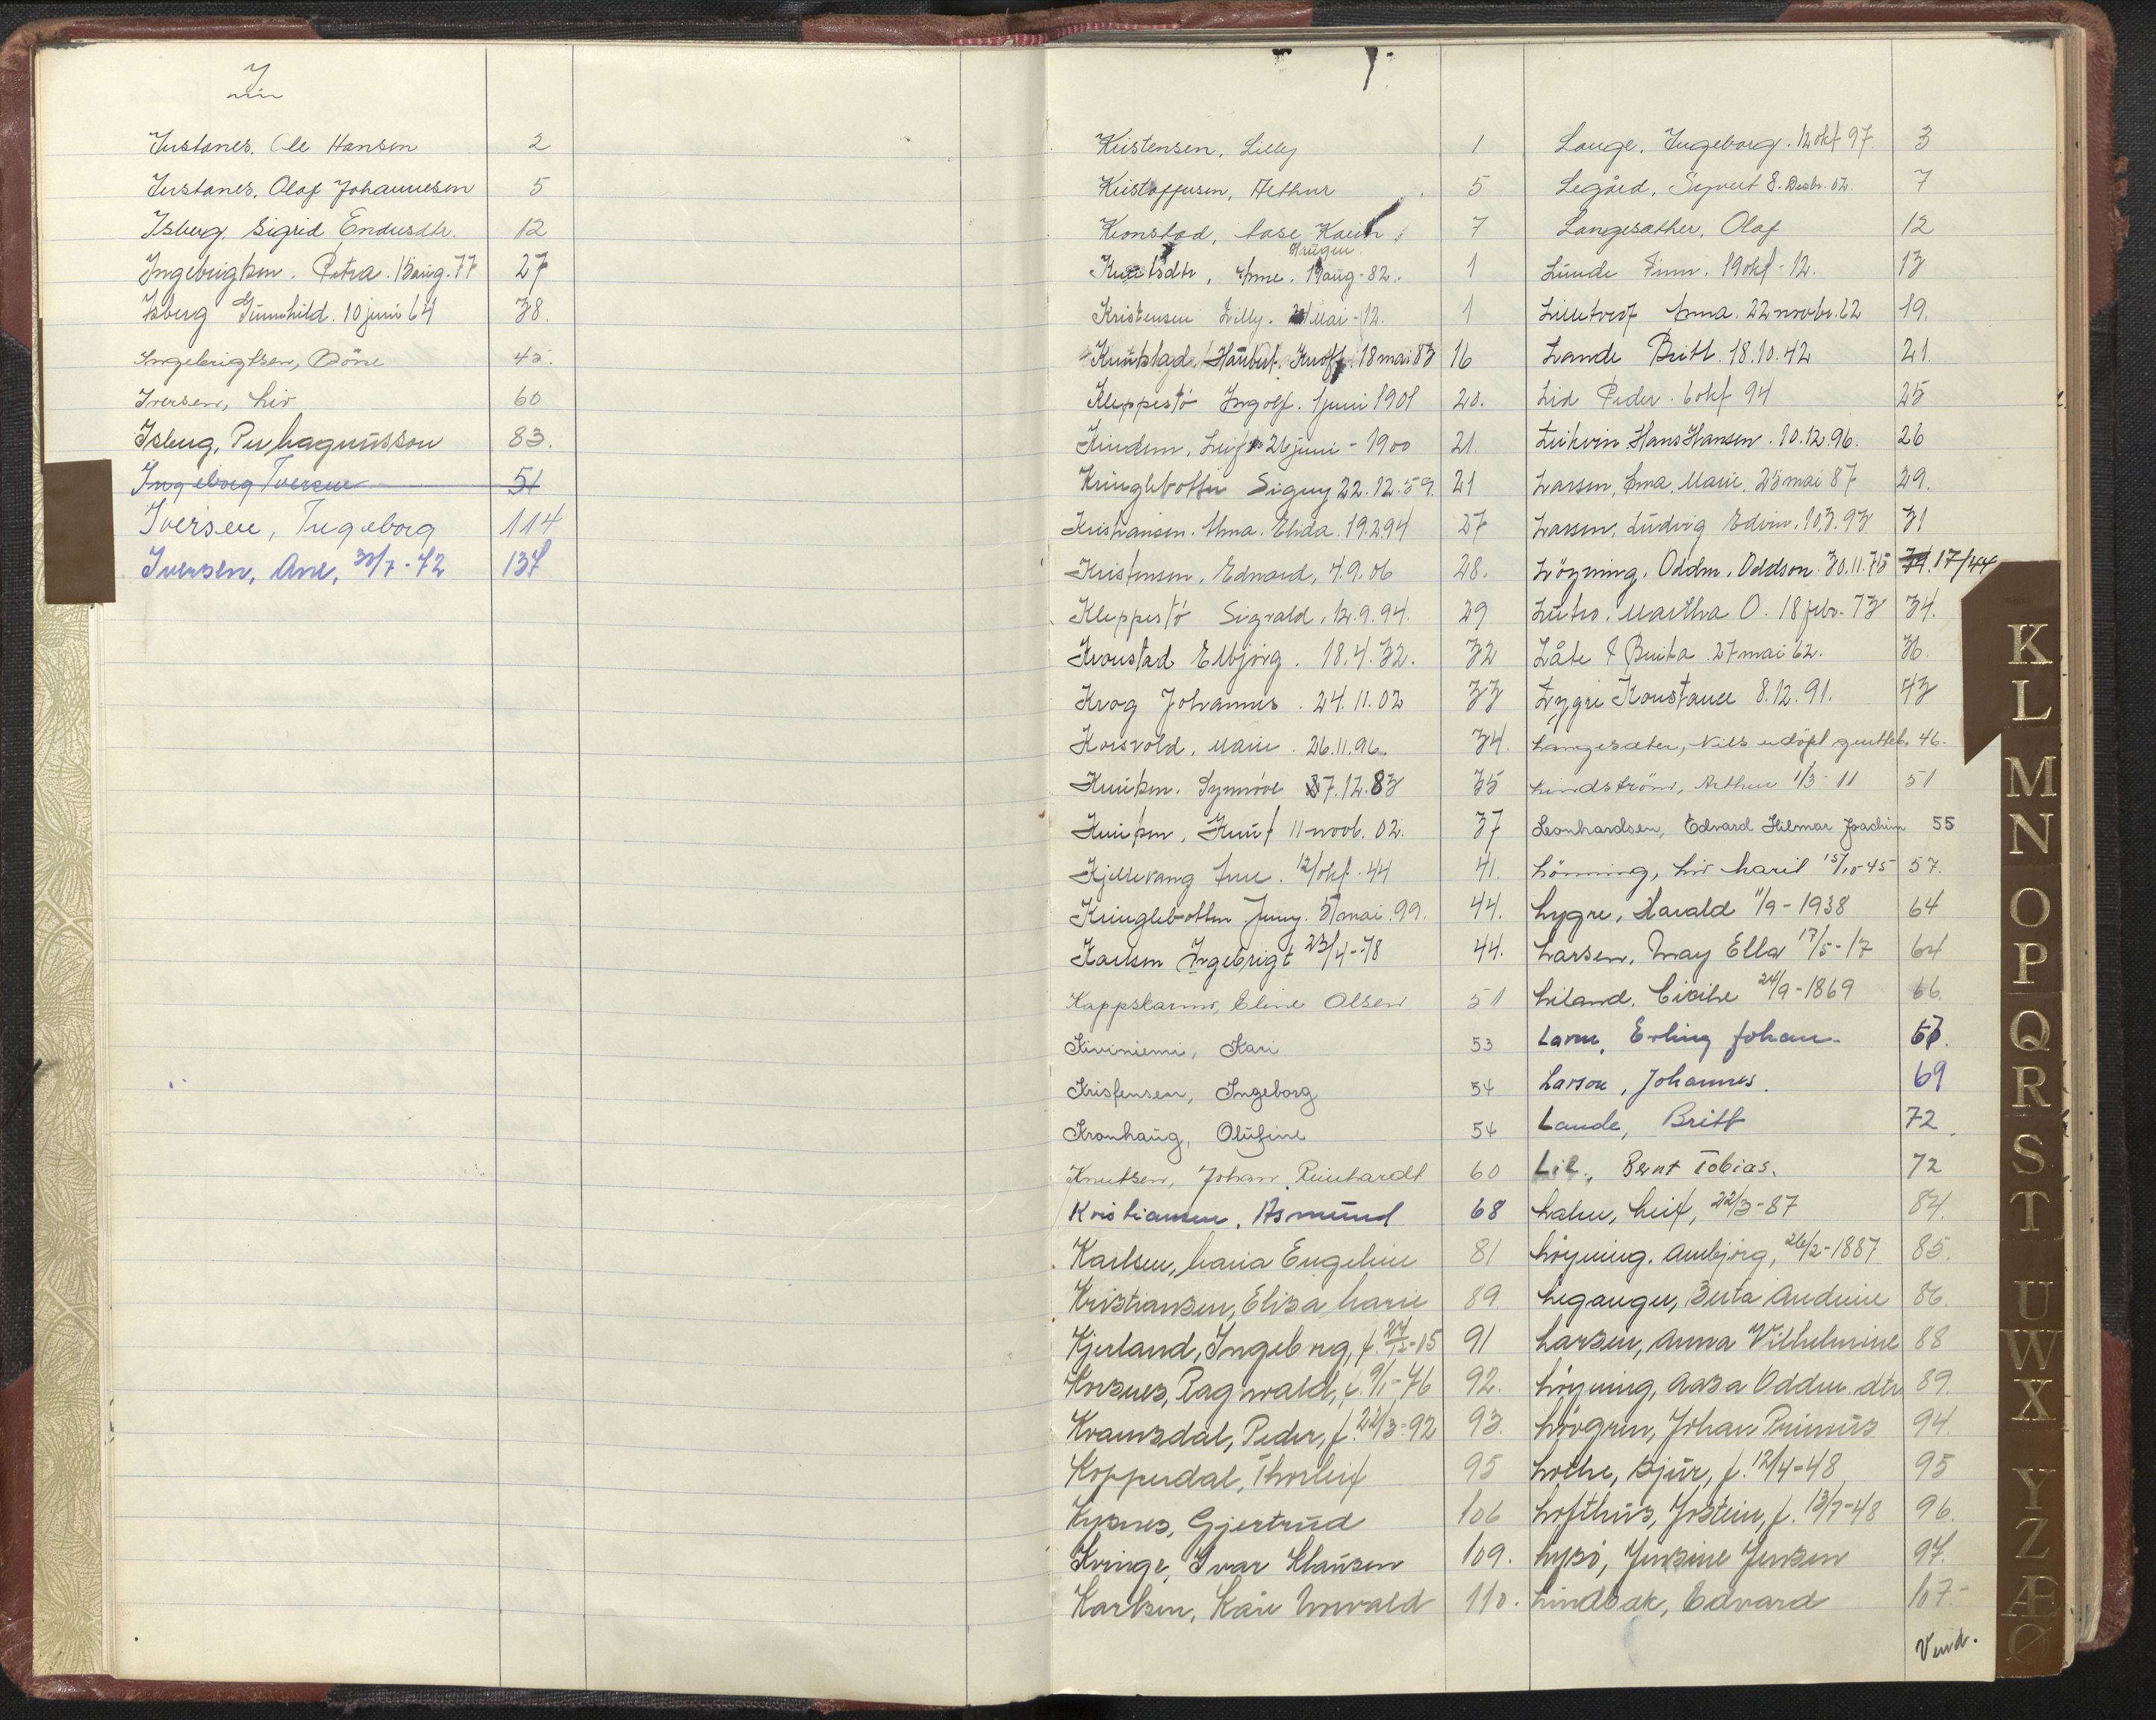 I
Instanes, Ole Hansen 2
Instanes, Olaf Johannesen 5
Isberg, Sigrid Endresdtr. 12
Ingebrigtsen. Petra. 15 aug. 77 27
Isberg Gunnhild. 10 juni 64 38
Ingebrigtsen, Børre 45.
Iversen, Liv 60
Isberg, Per Magnusson 83.
Ingeborg Iversen 51
Iversen, Ingeborg 114
Iversen, Ane, 30/7-72 137
Kristensen, Lilly 1
Kristoffersen, Arthur 5
Kronstad, Aase Karin 7
Krüger
Knutsdtr, Anne. 19 aug-82. 1
Kristensen Lilly. Mai-12. 1
Knutstad Haubert. Knoff. 18 mai 83 16
Kleppestø Ingolf. 1 juni 1901 20.
Kindem, Leif 26 juni-1900 21.
Kringlebotten Signy 22.12.59. 21
Kristiansen. Alma. Elida. 19.2.94 27
Kristensen, Edvard, 4.9.06 28.
Kleppestø Sigvald. 12.9.94. 29
Kronstad Elbjørg. 18.4.32. 32
Krog Johannes. 24.11.02 33
Korsvold, Marie. 26.11.96. 34.
Knutsen. Synnøve 7.12.83 35
Knutsen, Knut 11 novb. 02. 37
Kjellevang Ane. 12/okt. 44 41.
Kringlebotten Jenny. 5 mai. 99. 44.
Karlsen Ingebrigt 23/4-78 44.
Kappskarmo, Eline Olsen 51
Kiviniemi, Kari 53
Kristensen, Ingeborg 54
Kronhaug, Olufine 54
Knutsen, Johan Reinhardt 60
Kristiansen, Asmund 68
Karlsen, Maria Engeline 81
Kristiansen, Elisa Marie 89
Kjerland, Ingeborg, f. 27/12-05 91
Korsnes, Ragnvald, f. 9/1-76 92.
Kramsdal, Peder, f. 22/3-92 93.
Kopperdal, Thorleif 95
Kysnes, Gjertrud 106
Kvinge, Ivar Klausen 109.
Karlsen, Kåre Norvald 110.
Lange, Ingeborg. 12 okt 97. 3
Legård, Syvert 8. Desbr. 02. 7
Langesæther, Olaf 12
Lunde Finn. 19 okt-12. 13
Lilletvedt Anna. 22 novbr. 62 19.
Lande Britt. 18.10.42 21.
Lid Peder. 6 okt 94 25
Leikvin Hans Hansen. 10.12.96. 26
Larsen, Anna. Marie. 25 mai 87 29.
Larsen, Ludvig Edvin. 10.3.93 31
Løyning, Oddm. Oddson. 30.11.75 17/44
Lutro. Martha O. 18 febr. 73 34.
Låte Brita. 27 mai 62. 36.
Lygre Konstance 8.12.91. 43
Langesæter, Nils udøpt gutteb. 46.
Lindstrøm, Arthur 1/3-11 51
Leonhardsen, Edvard Hilmar Joachim 55
Lönning, Liv Marit 15/10-45 57.
Lygre, Harald 11/9-1938 64
Larsen, May Ella 17/5-17 64
Liland, Cicilie 24/9-1869 66.
Larsen, Erling Johan
Larson, Johannes. 69
Lande, Britt 72.
Lie, Bernt Tobias. 72
Lalm, Leif, 22/3-87 84.
Löyning, Ambjörg, 26/2-1887 85.
Leganger, Berta Andrine 86.
Larsen, Anna Vilhelmine 88
Löyning, Aasa Oddm. dtr 89.
Lövgren, Johan Primus 94.
Lothe, Sjur, f. 12/4-48 95
Lofthus, Jostein, f. 13/7-48 96.
Lysö, Jensine Jensen 97.
Lindbak, Edvard 107.
Vend.
K
L
M
N
O
P
Q
R
S
T
U
W
X
Y
Z
Æ
Ø